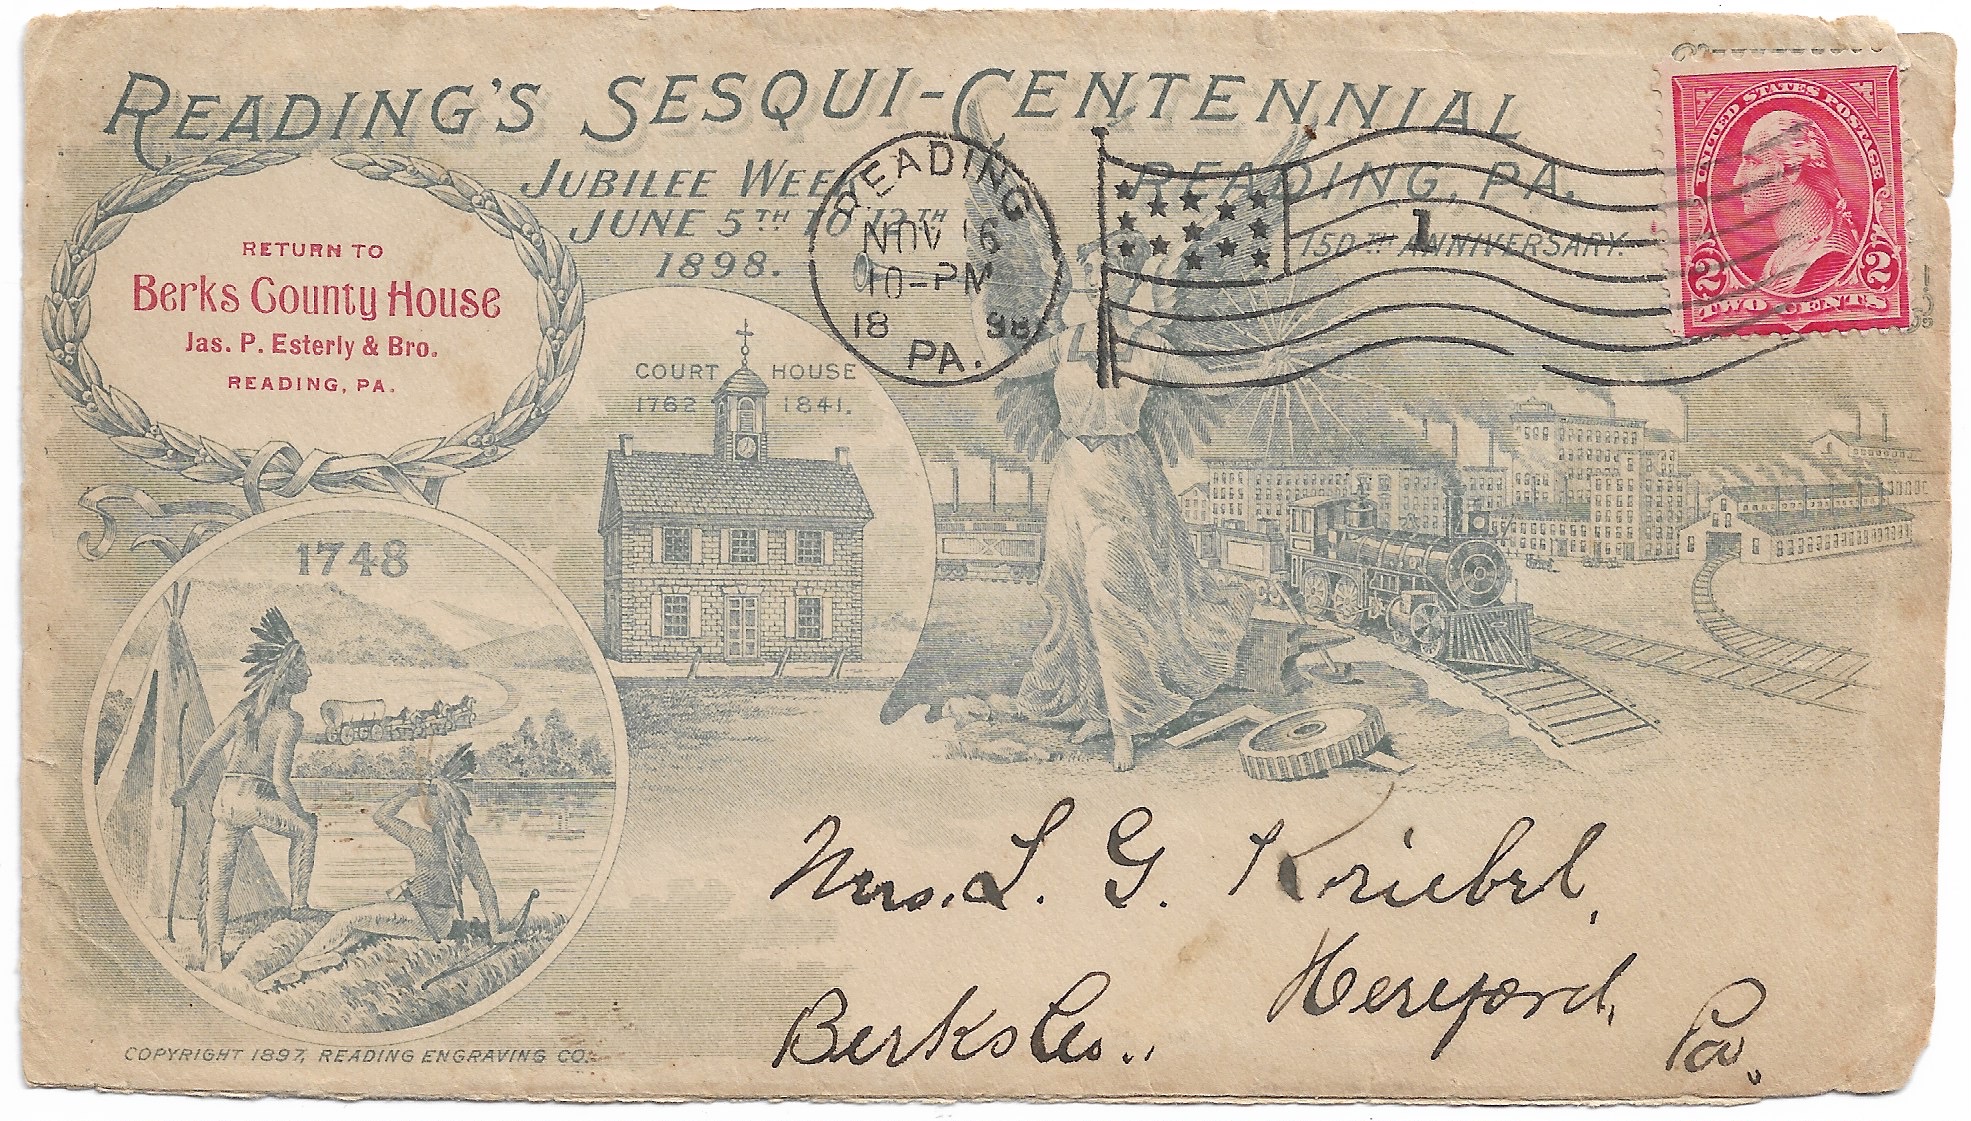 READING'S SESQUI-CENTENNIAL
JUBILEE WEEK READING, PA.
JUNE 5TH TO 12TH 150TH ANNIVERSARY.
1898.
RETURN TO
Berks County House
Jas. P. Esterly & Bro.
READING, PA.
READING
NOV 16
10-PM
18 98
PA.
1
UNITED STATES POSTAGE
2 2
TWO CENTS
COURT HOUSE
1762 1841.
1748
Mrs. L. G. Kriebel,
Hereford,
Berks Co., Pa.
COPYRIGHT 1897, READING ENGRAVING CO.